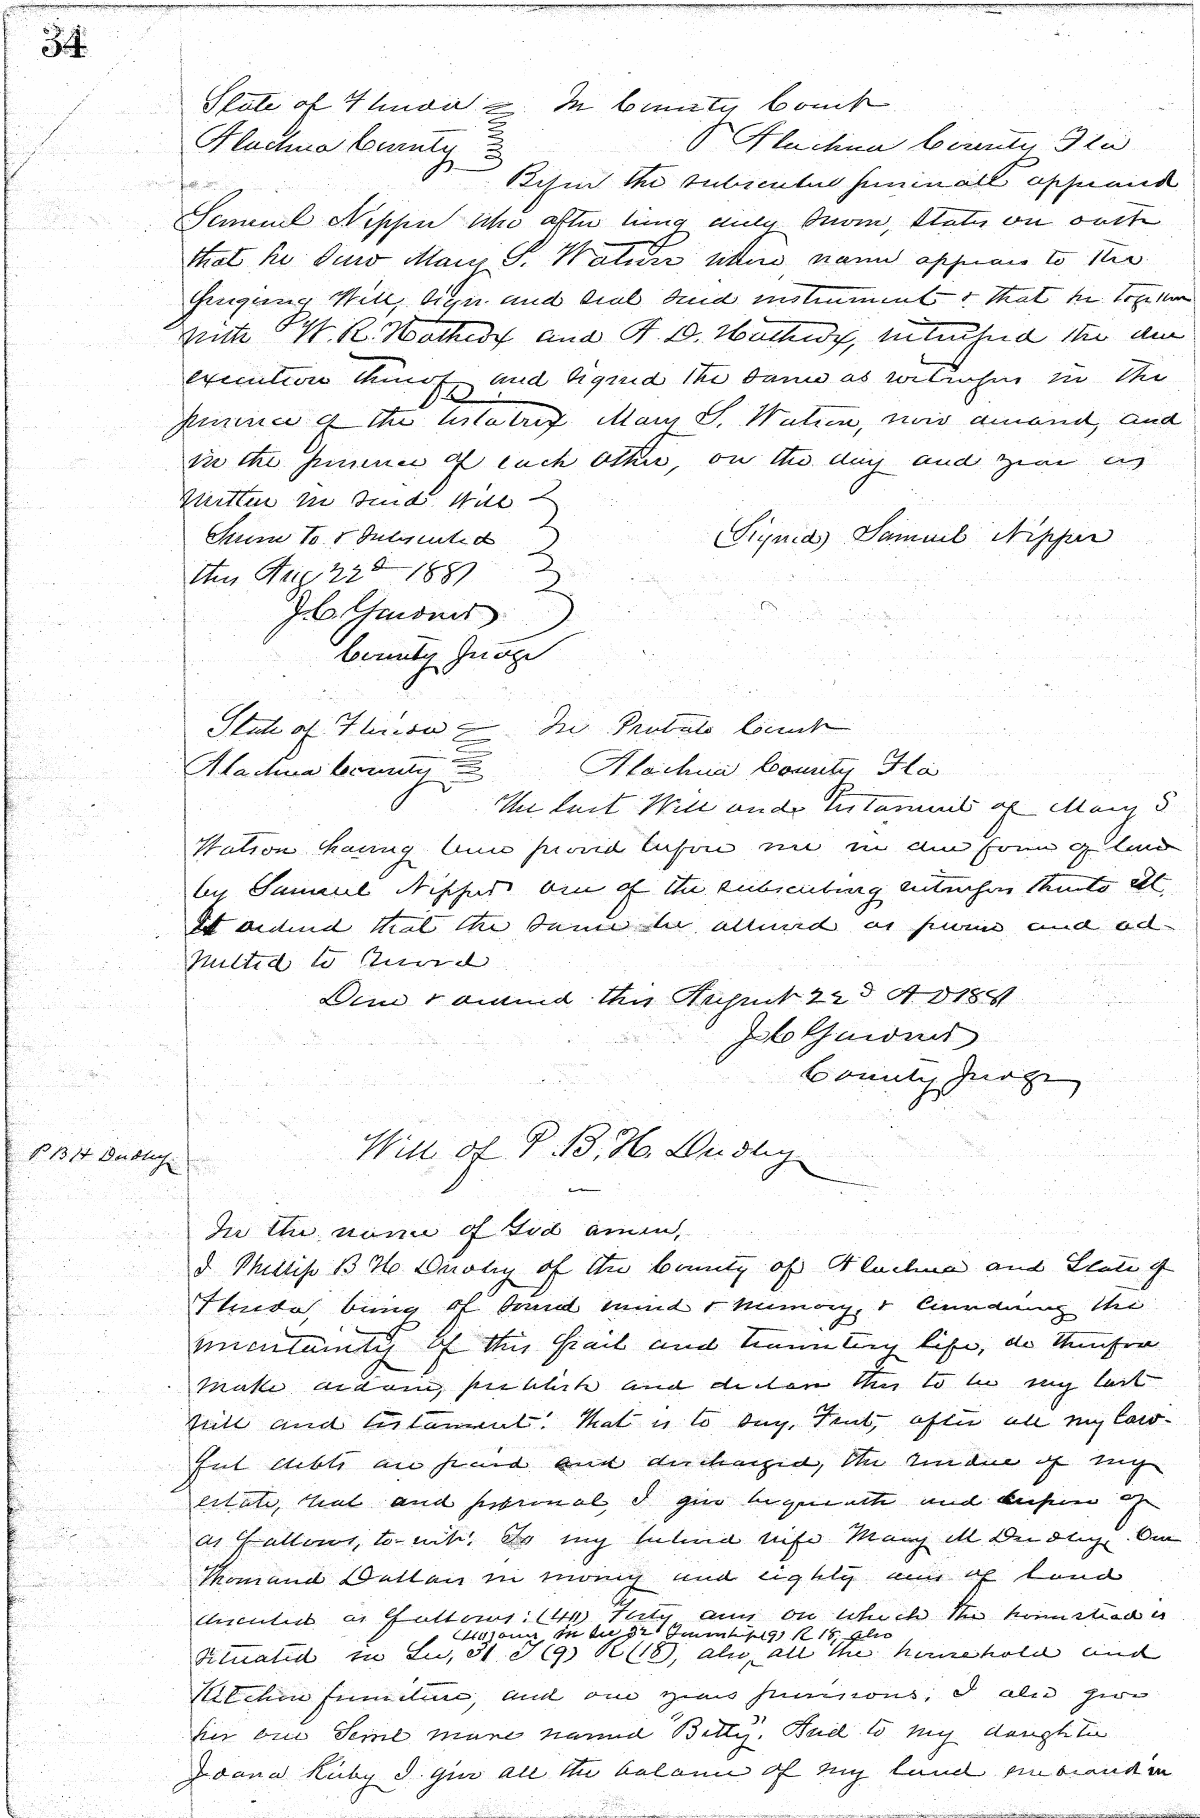 34
State of Florida } In County Court
Alachua County } Alachua County Fla
Before the subscriber personall appeared
Samuel Nipper who after being duly sworn, states on oath
that he saw Mary S. Watson whose name appears to the
foregoing Will, sign and seal said instrument & that he together
with W. R. Hathcox and A. D. Hathcox, witnessed the due
execution thereof, and signed the same as witnesses in the
presence of the testatrix Mary S. Watson, now deceased, and
in the presence of each other, on the day and year as
written in said Will
Sworn to & subscribed (Signed) Samuel Nipper
this Aug 22d 1881
J. C. Gardner
County Judge
State of Florida } In Probate Court
Alachua County } Alachua County Fla
The last Will and Testament of Mary S
Watson having been proved before me in due form of law
by Samuel Nipper one of the subscribing witnesses thereto It
is ordered that the same be allowed as proven and ad-
mitted to record
Done & ordered this August 22d A D 1881
J C Gardner
County Judge
P B H Dudley
Will of P. B. H. Dudley
In the name of God amen,
I Phillip B H Dudley of the County of Alachua and State of
Florida, being of sound mind & memory, & considering the
uncertainty of this frail and transitory life, do therefore
make ordain, publish and declare this to be my last
will and testament: That is to say, First, after all my law-
ful debts are paid and discharged, the residue of my
estate, real and personal, I give bequeath and dispose of
as follows, to-wit: To my beloved wife Mary M Dudley One
Thousand Dollars in money and eighty acres of land
described as follows: (40) Forty acres on which the homestead is
(40) acres in Sec 32 Township (9) R 18, also
situated in Sec, 31 T (9) R (18), also, all the household and
Kitchen furniture, and one years provisions; I also give
her one Sorrel mare named "Betty". And to my daughter
Joana Kirby I give all the balance of my land embraced in